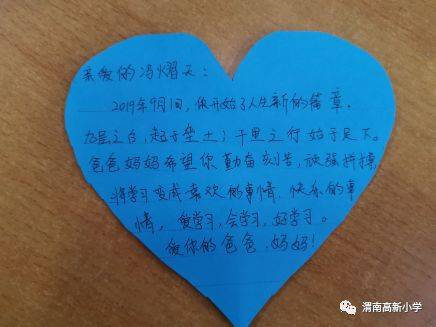 亲爱的冯熠天：
2019年9月1日，你开始了人生新的篇章。
九层之台，起于垒土；千里之行始于足下。
爸爸妈妈希望你勤奋刻苦，顽强拼搏，
将学习变成喜欢的事情、快乐的事
情，爱学习，会学习，好学习。
爱你的爸爸、妈妈！
渭南高新小学